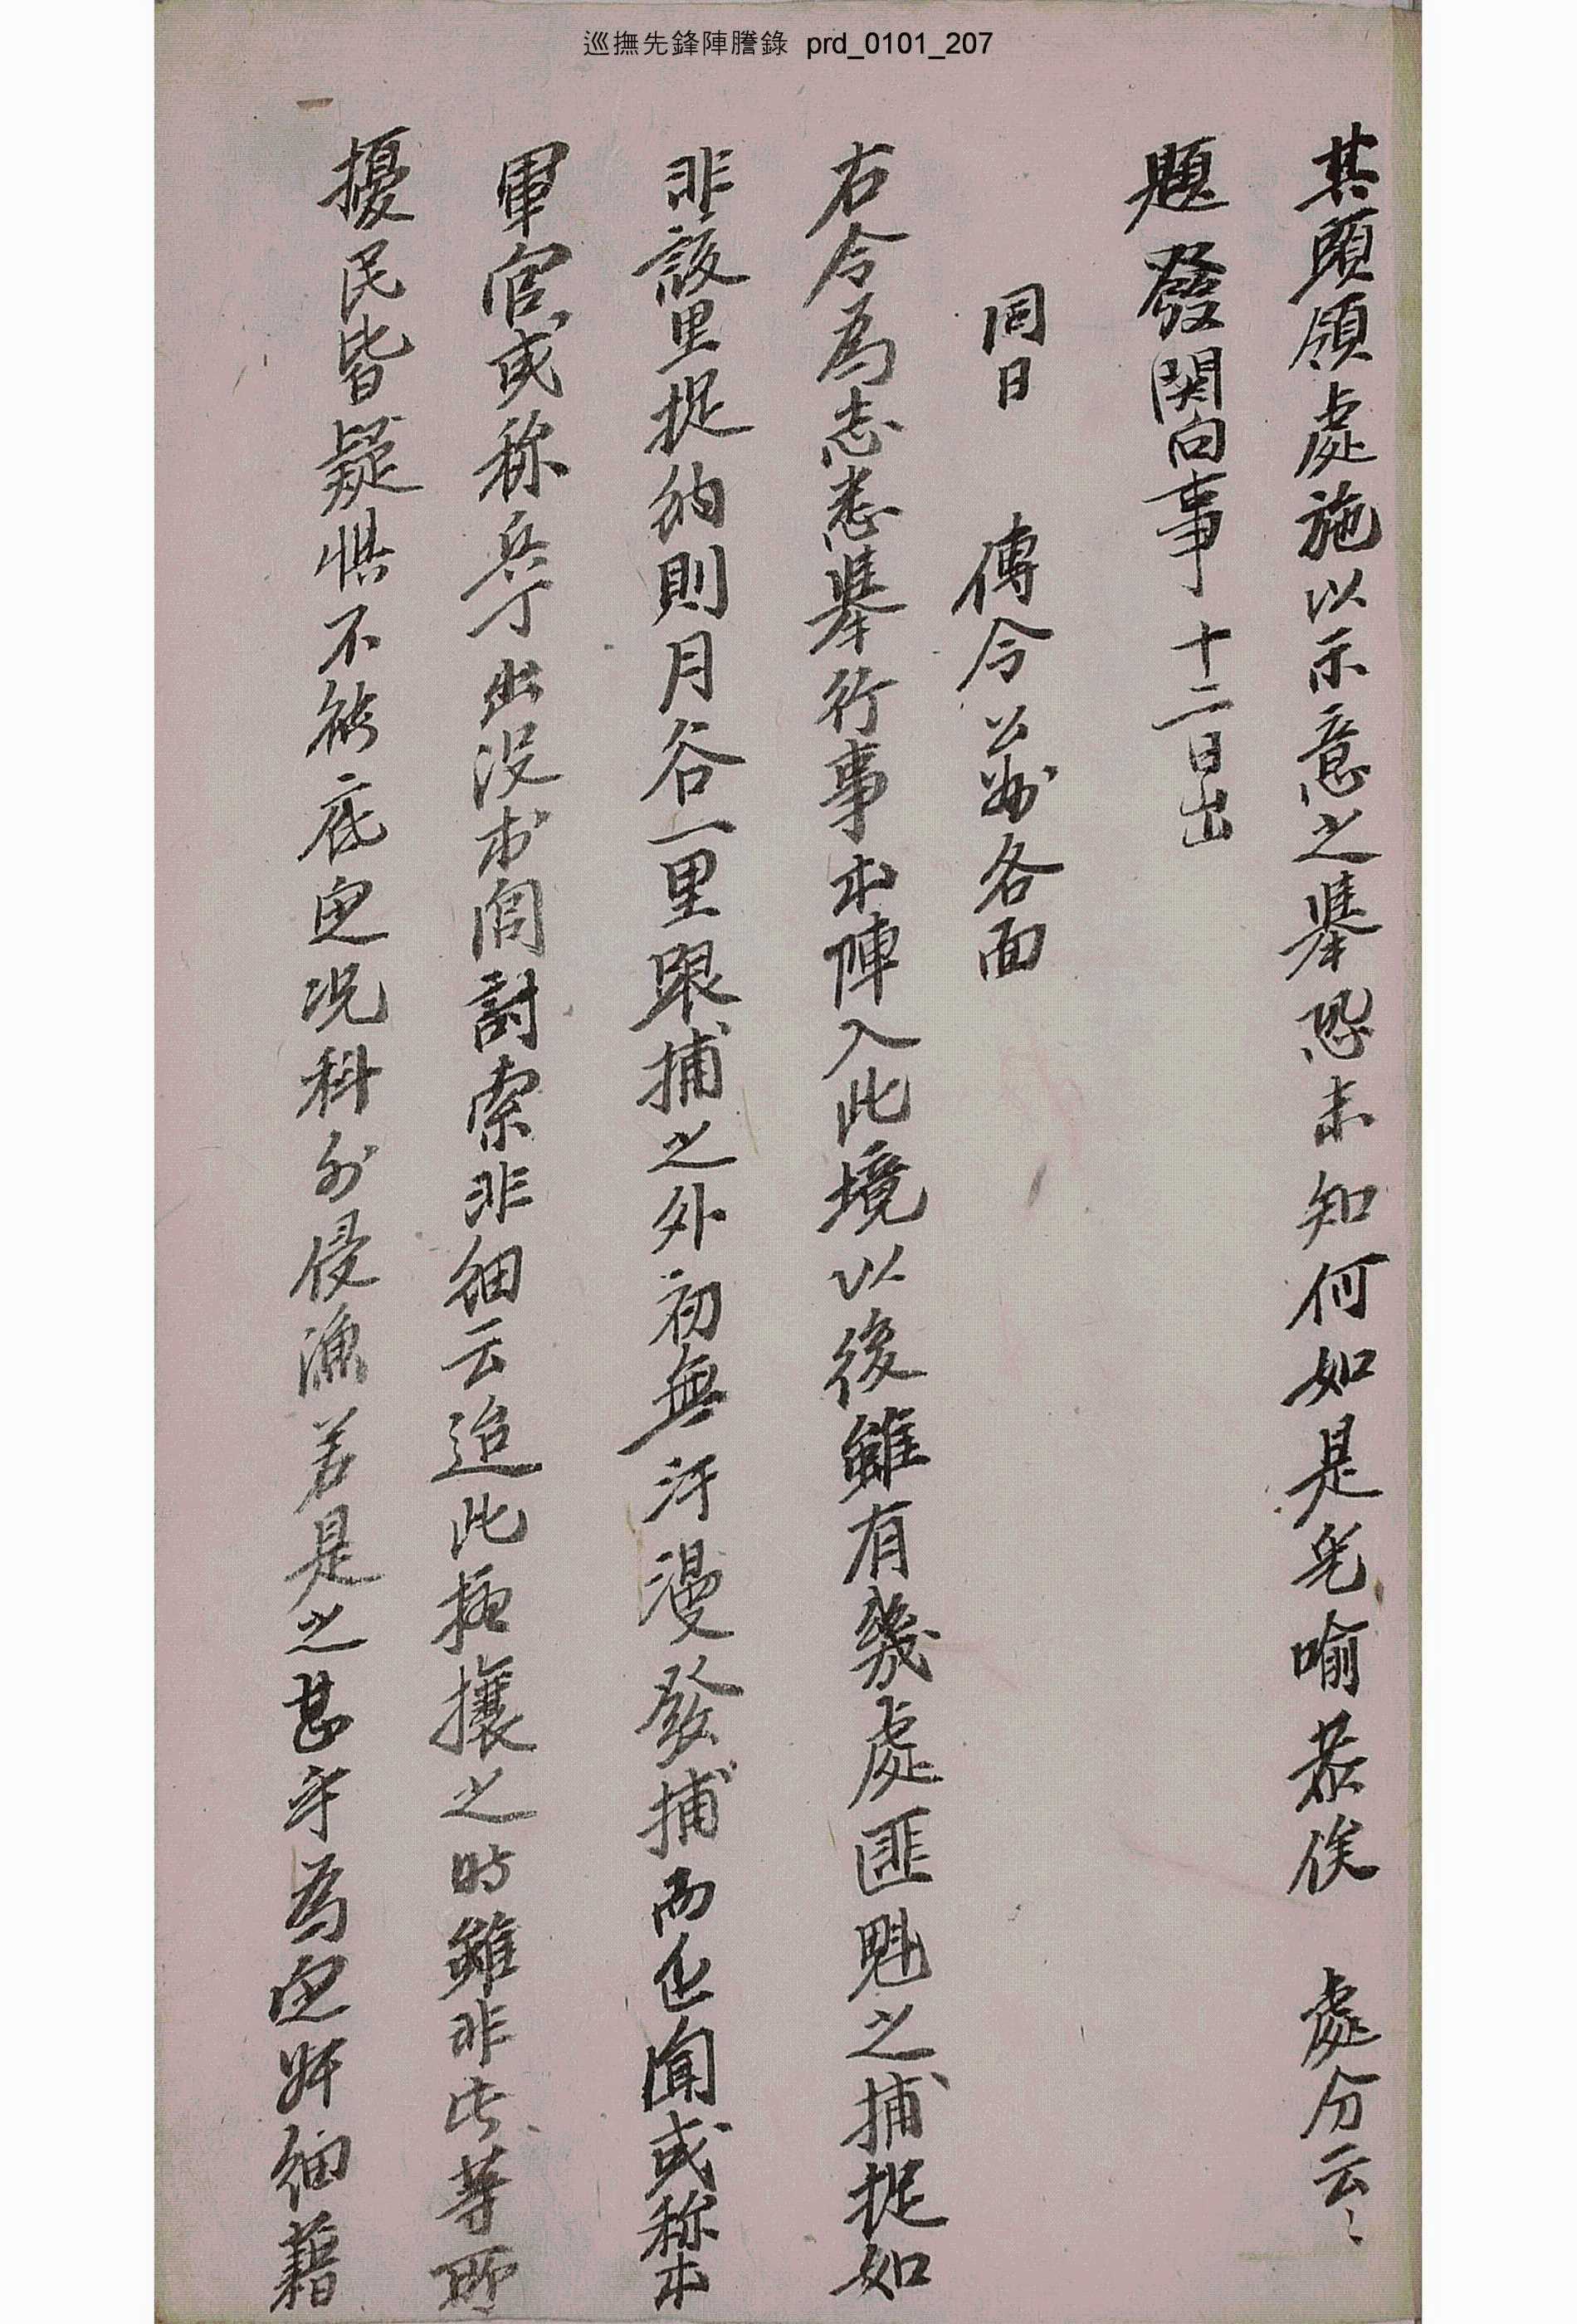 巡撫先鋒陣謄錄 prd_0101_207
其頭領處施以示意之舉恐未知何如是乎喻恭俟 處分云〻
題發関向事 十二日出
同日 傳令 公州各面
右令爲志悉舉行事本陣入此境以後雖有幾處匪魁之捕捉如
非該里捉納則月谷一里跟捕之外初無汗漫發捕而近聞或称本
軍官或称兵丁出沒村閭討索非細云迨此搶攘之時雖非此等所
擾民皆疑惧不能底定况科外侵漁若是之甚乎爲定奸細藉